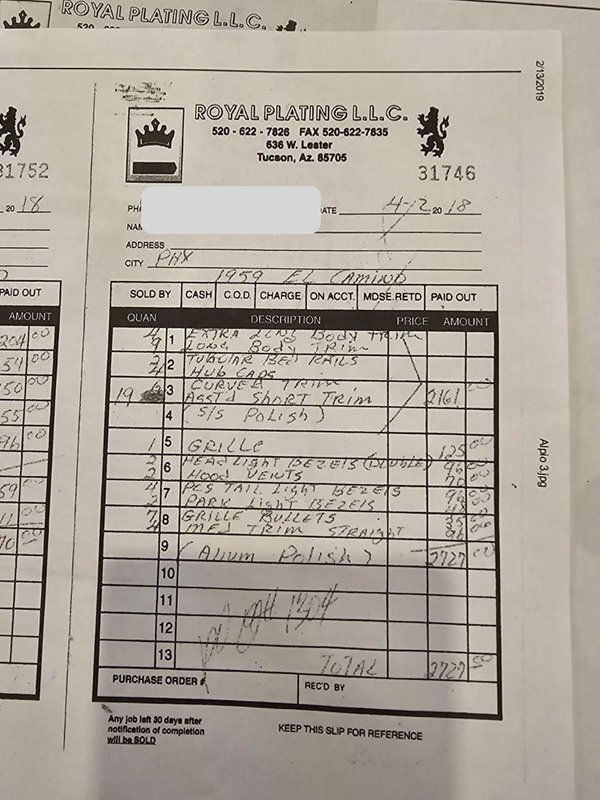 ROYAL PLATING L.L.C.
2/13/2019
ROYAL PLATING L.L.C.
520 - 622 - 7826 FAX 520-622-7835
636 W. Lester
Tucson, Az. 85705
31752
31746
20 18
PH
DATE 4-12 20 18
NAM
ADDRESS
CITY PHX
1959 EL CAMINO
PAID OUT
SOLD BY CASH C.O.D. CHARGE ON ACCT. MDSE. RETD PAID OUT
AMOUNT
QUAN DESCRIPTION PRICE AMOUNT
4 1 EXTRA LONG BODY TRIM
9 LONG BODY TRIM
2 2 TUBULAR BED RAILS
4 HUB CAPS
3 CURVED TRIM
19 ASST'd SHORT TRIM 2161 00
4 (S/S POLISH)
5
1 GRILLE 125 00
2 6 HEADLIGHT BEZELS (DOUBLE) 96 00
2 HOOD VENTS 70 00
4 7 PCS TAIL LIGHT BEZELS 96 00
2 PARK LIGHT BEZELS 48 00
7 8 GRILLE BULLETS 35 00
4 MED TRIM STRAIGHT 96 00
9 (Alium Polish) 2727 00
10
11
12
13 TOTAL 2727 00
PURCHASE ORDER # REC'D BY
Any job left 30 days after
notification of completion
will be SOLD
KEEP THIS SLIP FOR REFERENCE
Alpio 3.jpg